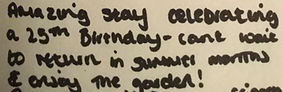 Amazing stay celebrating
a 25th Birthday - cant wait
to return in summer months
& enjoy the garden!